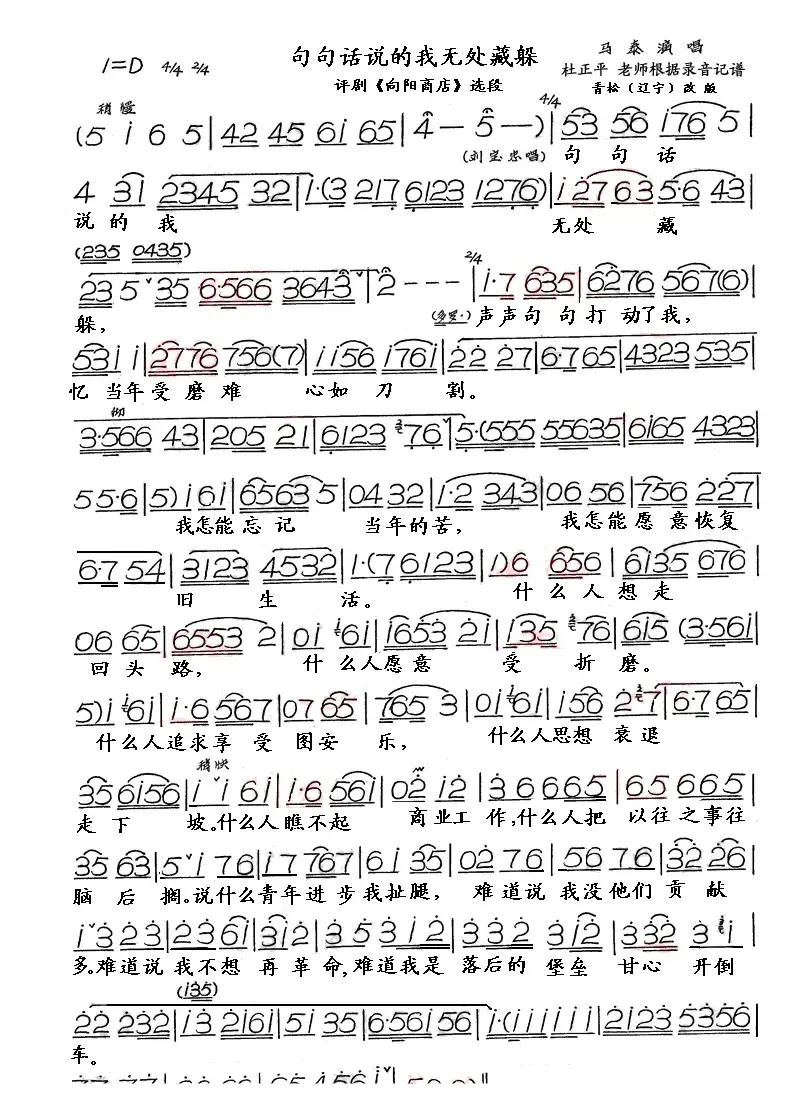 句句话说的我无处藏躲
马泰演唱
1=D 4/4 2/4
杜正平 老师根据录音记谱
评剧《向阳商店》选段
青松（辽宁）改版
稍慢
(5 i 6 5|42 45 6i 65|4 — 5 —)|53 56 i76 5|
(刘宝忠唱) 句 句 话
4 3i 2345 32|1·(3 217 6123 1276)|i 2763 5·6 43|
说 的 我 无处 藏
(235 0435)
23 5 35 6·566 3643|2 - - -|i·7 635|6276 567(6)|
躲， 声声句 句打 动了我，
53i i|2776 756(7)|ii56 i76i|22 27|6·765|4323 535|
忆 当年受磨难 心如刀 割。
3·566 43|205 21|6123 76|5·(555 55635|6165 4323|
55·6|5)i 6i|6563 5|04 32|1·2 343|06 56|756 227|
我怎能忘记 当年的苦， 我怎能愿意恢复
6·7 54|3123 4532|1·(7 6123|1)6 656|6i35 676|
旧 生 活。 什么人想走
06 65|6553 2|0i 6i|i653 2i|i35 76|6i5 (3·56i|
回头路， 什么人愿意 受 折磨。
5)i 6i|i·6 567|07 65|765 3|0i 6i|i56 27|6·7 65|
什么人追求享受图安 乐， 什么人思想衰退
稍快
35 6i56|i i 6i|i·6 56i|02 i2|3 6665|65 665|
走下 坡。什么人瞧不起 商业工作，什么人把 以往之事往
35 63|5 i 76|i7 767|6i 35|02 76|56 76|32 26|
脑后搁。说什么青年进步我扯腿， 难道说 我没他们贡献
i 323|23 6i|3i2|35 3i2|332 3i2|332 3 i|
多。难道说我不想再革命，难道我是落后的堡垒 甘心 开倒
(i35)
22 232|i3 2i6i|5i 35|6·56i56|i·(iii iii|2i23 5356|
车。